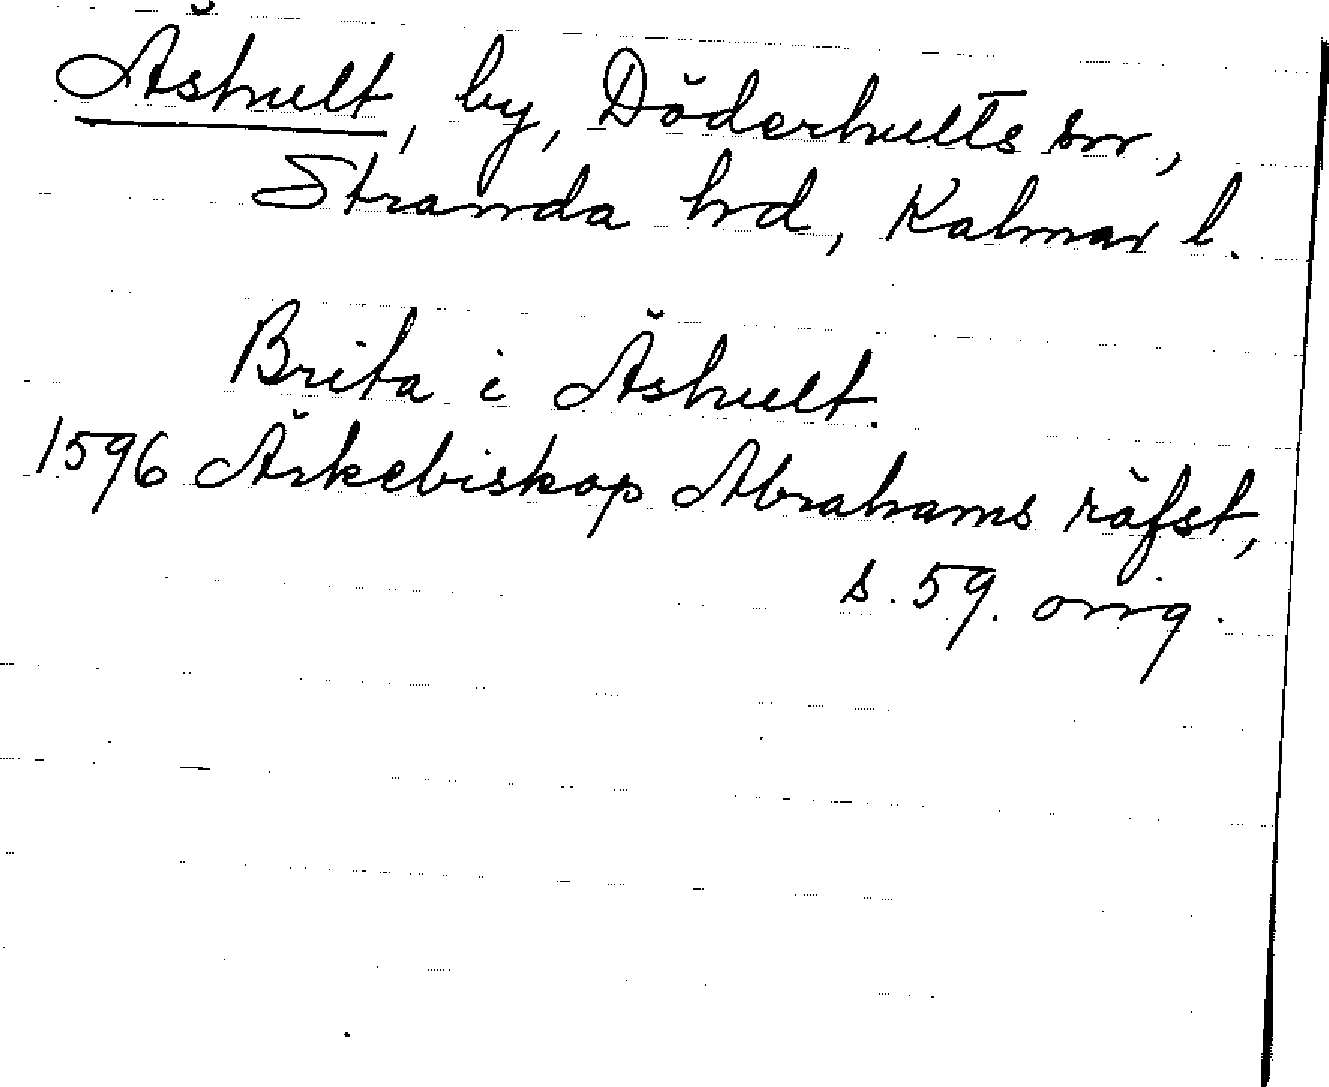 Äshult, by, Döderhults sn,
Stranda hd, Kalmar l.
Brita i Äshult.
1596 Ärkebiskop Abrahams räfst,
s. 59. orig.